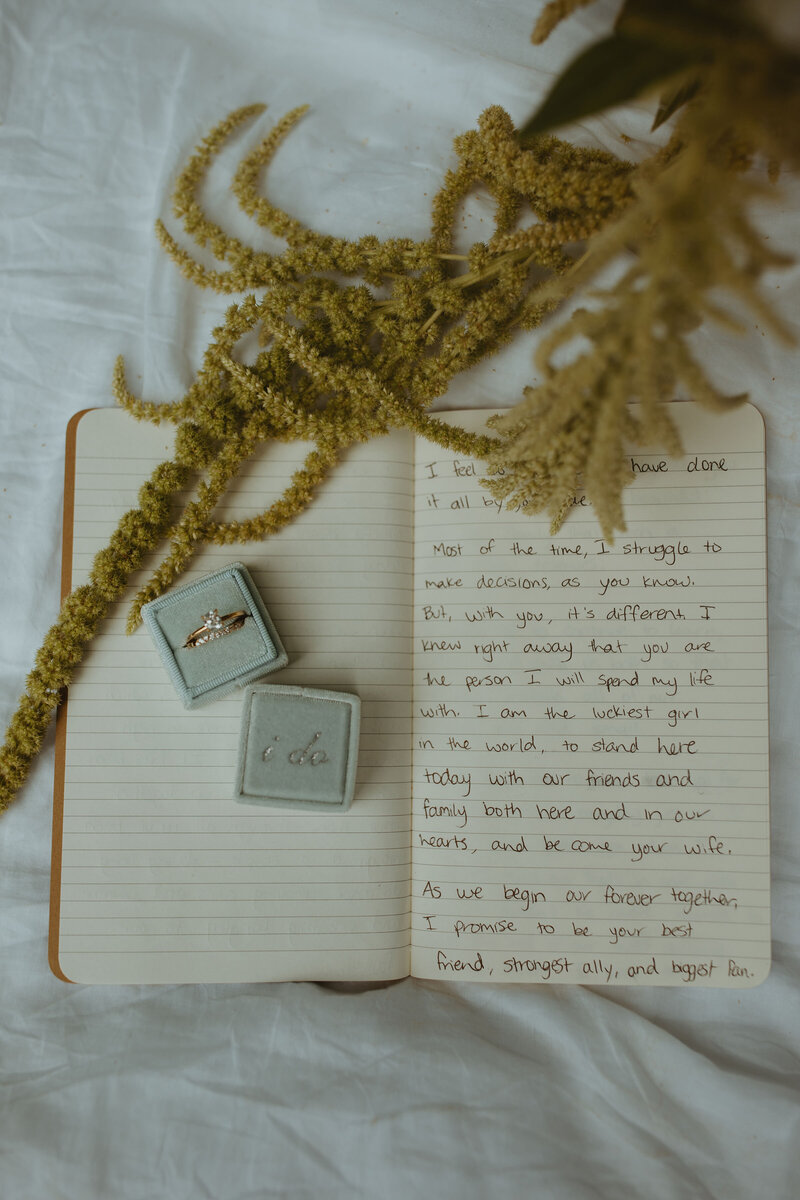 I feel have done
it all by
Most of the time, I struggle to
make decisions, as you know.
But, with you, it's different. I
knew right away that you are
the person I will spend my life
with. I am the luckiest girl
in the world, to stand here
today with our friends and
family both here and in our
hearts, and become your wife.
As we begin our forever together,
I promise to be your best
friend, strongest ally, and biggest fan.
i do